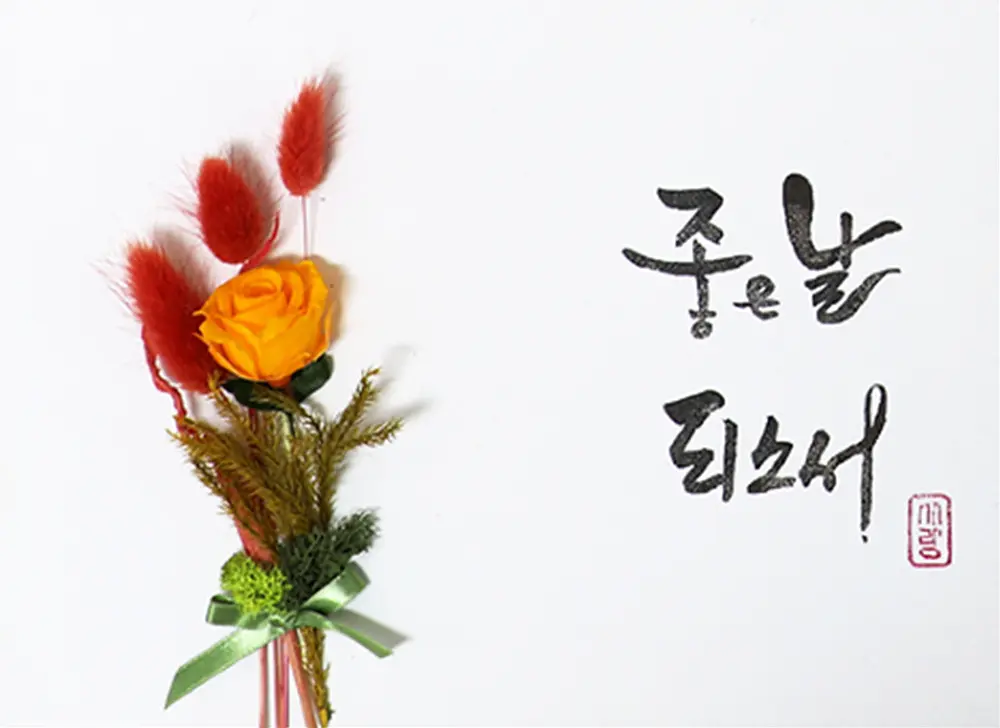 좋은날
되소서